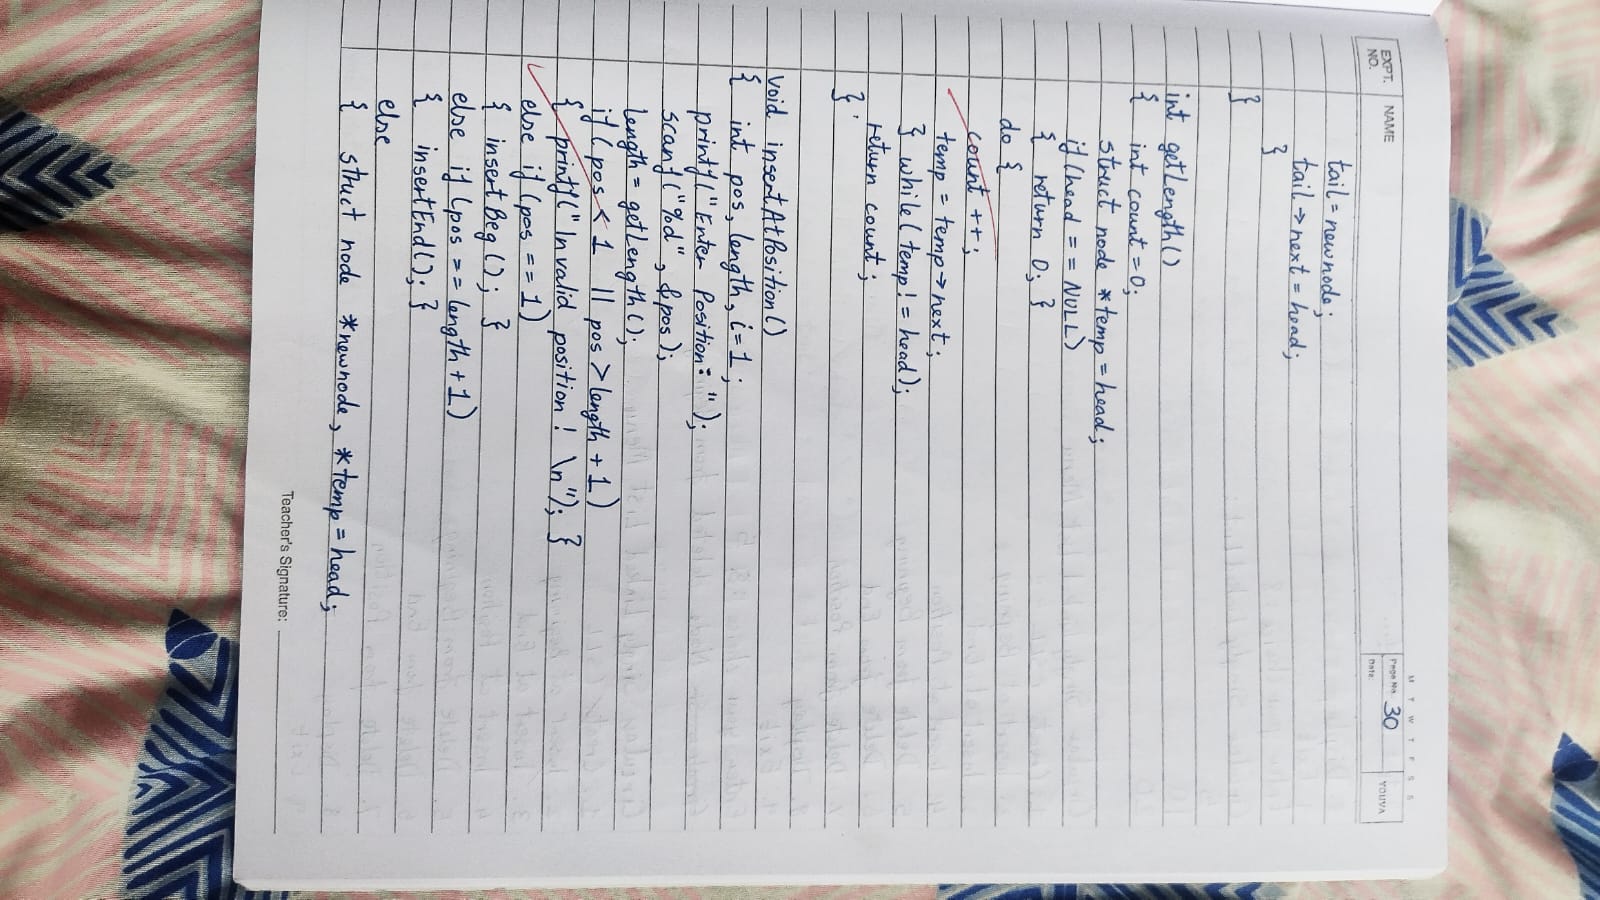 M T W T F S S
EXPT. NO. NAME Page No. 30 YOUVA
Date:
tail = newnode;
tail → next = head;
}
}
int getLength()
{ int count = 0;
struct node *temp = head;
if (head == NULL)
{ return 0; }
do {
count ++;
temp = temp → next;
} while( temp != head);
return count;
}
void insertAtPosition()
{ int pos, length, i=1;
printf("Enter Position: ");
scanf("%d", &pos);
length = getLength();
if ( pos < 1 || pos > length + 1)
{ printf("Invalid position! \n"); }
else if (pos == 1)
{ insertBeg(); }
else if (pos == length + 1)
{ insertEnd(); }
else
{ struct node *newnode, *temp = head;
Teacher's Signature: